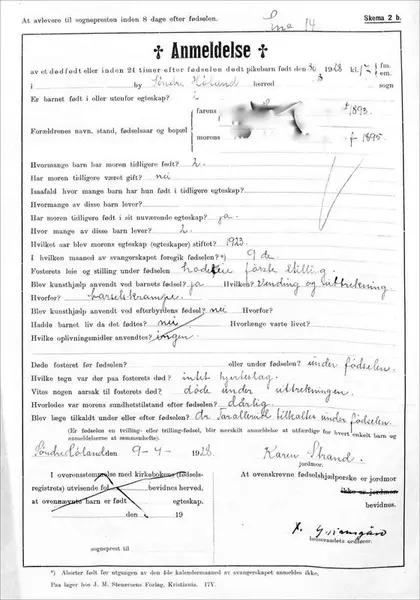 At avlevere til sogneprosten inden 8 dage efter fødselen.
Skema 2 b.
Anmeldelse
av et dødfødt eller inden 24 timer efter fødselen dødt pikebarn født den 30/3 1928 kl.
i by Søndre Høland herred sogn
Er barnet født i eller utenfor egteskap? i
farens f 1893.
Forældrenes navn, stand, fødselsaar og bopæl
morens f 1895.
Hvormange barn har moren tidligere født? 2.
Har moren tidligere været gift? nei
Isaafald hvor mange barn har hun født i tidligere egteskap?
Hvormange av disse barn lever?
Har moren tidligere født i sit nuværende egteskap? ja.
Hvor mange av disse barn lever? 2.
Hvilket aar blev morens egteskap (egteskaper) stiftet? 1923.
I hvilken maaned av svangerskapet foregik fødselen?*) 9 de.
Fosterets leie og stilling under fødselen hodeleie første stilling
Blev kunsthjælp anvendt ved barnets fødsel? ja Hvilken? Vending og uttrekning
Hvorfor? barselskrampe.
Blev kunsthjælp anvendt ved efterbyrdens fødsel? nei Hvorfor?
Hadde barnet liv da det fødtes? nei Hvorlænge varte livet?
Hvilke oplivningsmidler anvendtes? ingen
Døde fosteret før fødselen? eller under fødselen? under fødselen.
Hvilke tegn var der paa fosterets død? intet hjerteslag.
Vites nogen aarsak til fosterets død? døde under uttrekningen.
Hvorledes var morens sundhetstilstand efter fødselen? dårlig.
Blev læge tilkaldt under eller efter fødselen? dr. tilkaltes under fødselen.
(Er fødselen en tvilling- eller trilling-fødsel, bør særskilt anmeldelse at utfærdige for hvert enkelt barn og
anmeldelserne at sammenhefte).
Søndre Høland den 9-4- 1928.
Karen Strand.
jordmor.
I overensstemmelse med kirkebokens (fødsels-
registrets) utvisende bevidnes herved,
at ovennævnte barn er født egteskap.
den 19
sogneprest til
At ovenskrevne fødselshjælperske er jordmor
ikke er jordmor
bevidnes.
helseraadets ordfører.
*) Aborter født før utgangen av den 6te kalendermaaned av svangerskapet anmeldes ikke.
Paa lager hos J. M. Stenersens Forlag, Kristiania. 17V.